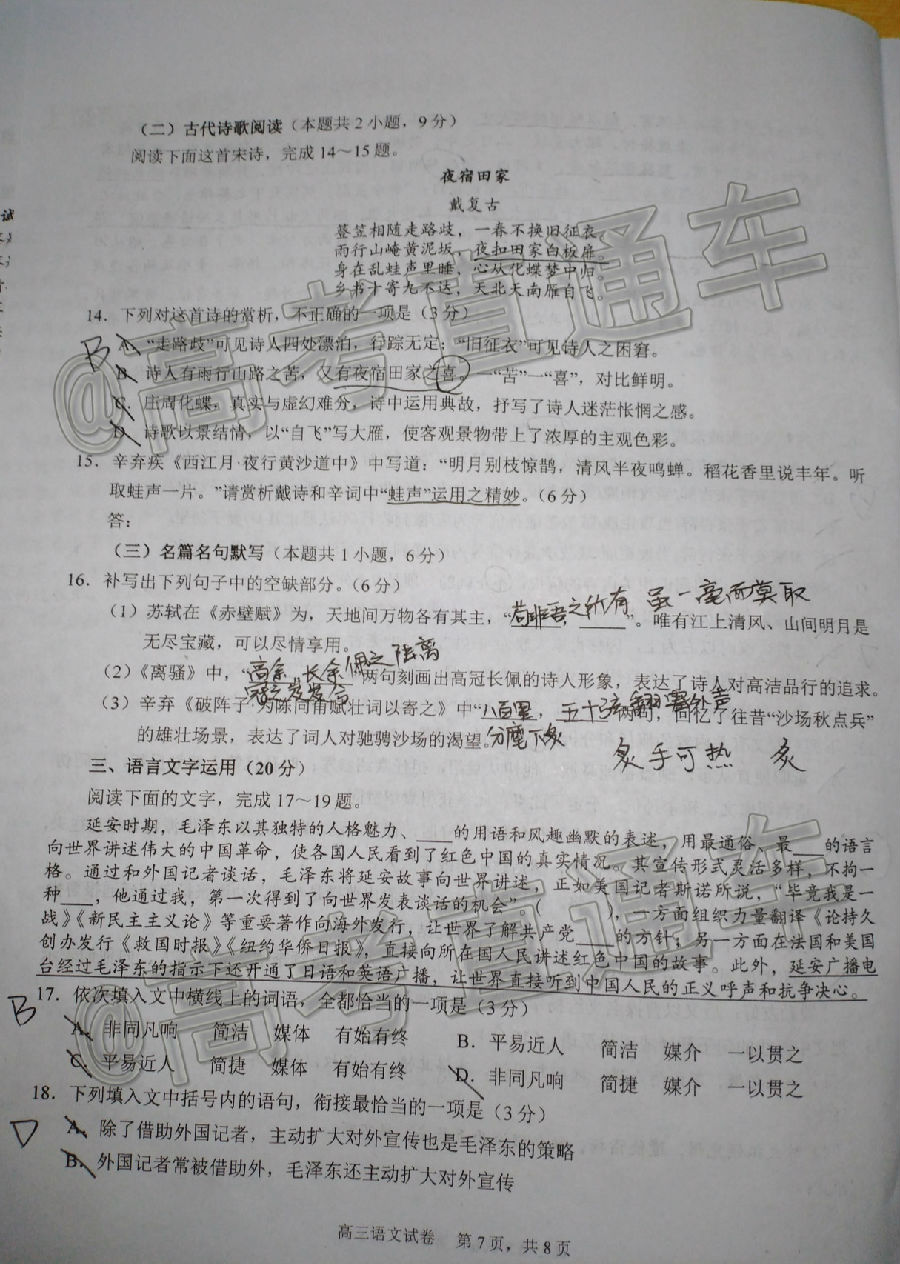 （二）古代诗歌阅读（本题共2小题，9分）
阅读下面这首宋诗，完成14～15题。
夜宿田家
戴复古
簦笠相随走路歧，一春不换旧征衣。
雨行山崦黄泥坂，夜扣田家白板扉。
身在乱蛙声里睡，心从化蝶梦中归。
乡书十寄九不达，天北天南雁自飞。
14．下列对这首诗的赏析，不正确的一项是（3分）
B
A．“走路歧”可见诗人四处漂泊，行踪无定；“旧征衣”可见诗人之困窘。
B．诗人有雨行山路之苦，又有夜宿田家之喜。一“苦”一“喜”，对比鲜明。
C．庄周化蝶，真实与虚幻难分，诗中运用典故，抒写了诗人迷茫怅惘之感。
D．诗歌以景结情，以“自飞”写大雁，使客观景物带上了浓厚的主观色彩。
15．辛弃疾《西江月·夜行黄沙道中》中写道：“明月别枝惊鹊，清风半夜鸣蝉。稻花香里说丰年。听
取蛙声一片。”请赏析戴诗和辛词中“蛙声”运用之精妙。（6分）
答：
（三）名篇名句默写（本题共1小题，6分）
16．补写出下列句子中的空缺部分。（6分）
（1）苏轼在《赤壁赋》为，天地间万物各有其主，“苟非吾之所有 虽一毫而莫取”。唯有江上清风、山间明月是
无尽宝藏，可以尽情享用。
（2）《离骚》中，“高余冠之岌岌兮，长余佩之陆离”两句刻画出高冠长佩的诗人形象，表达了诗人对高洁品行的追求。
（3）辛弃《破阵子·为陈同甫赋壮词以寄之》中“八百里分麾下炙，五十弦翻塞外声”两句，回忆了往昔“沙场秋点兵”
的雄壮场景，表达了词人对驰骋沙场的渴望。
炙手可热 炙
三、语言文字运用（20分）
阅读下面的文字，完成17～19题。
延安时期，毛泽东以其独特的人格魅力、____的用语和风趣幽默的表述，用最通俗、最____的语言
向世界讲述伟大的中国革命，使各国人民看到了红色中国的真实情况。其宣传形式灵活多样，不拘一
格。通过和外国记者谈话，毛泽东将延安故事向世界讲述，正如美国记者斯诺所说，“毕竟我是一
种____，他通过我，第一次得到了向世界发表谈话的机会”（　　），一方面组织力量翻译《论持久
战》《新民主主义论》等重要著作向海外发行，让世界了解共产党____的方针；另一方面在法国和美国
创办发行《救国时报》《纽约华侨日报》，直接向所在国人民讲述红色中国的故事。此外，延安广播电
台经过毛泽东的指示下还开通了日语和英语广播，让世界直接听到中国人民的正义呼声和抗争决心。
17．依次填入文中横线上的词语，全都恰当的一项是（3分）
B
A．非同凡响 简洁 媒体 有始有终 B．平易近人 简洁 媒介 一以贯之
C．平易近人 简捷 媒体 有始有终 D．非同凡响 简捷 媒介 一以贯之
18．下列填入文中括号内的语句，衔接最恰当的一项是（3分）
D
A．除了借助外国记者，主动扩大对外宣传也是毛泽东的策略
B．外国记者常被借助外，毛泽东还主动扩大对外宣传
高三语文试卷 第7页，共8页
@高考直通车
@高考直通车